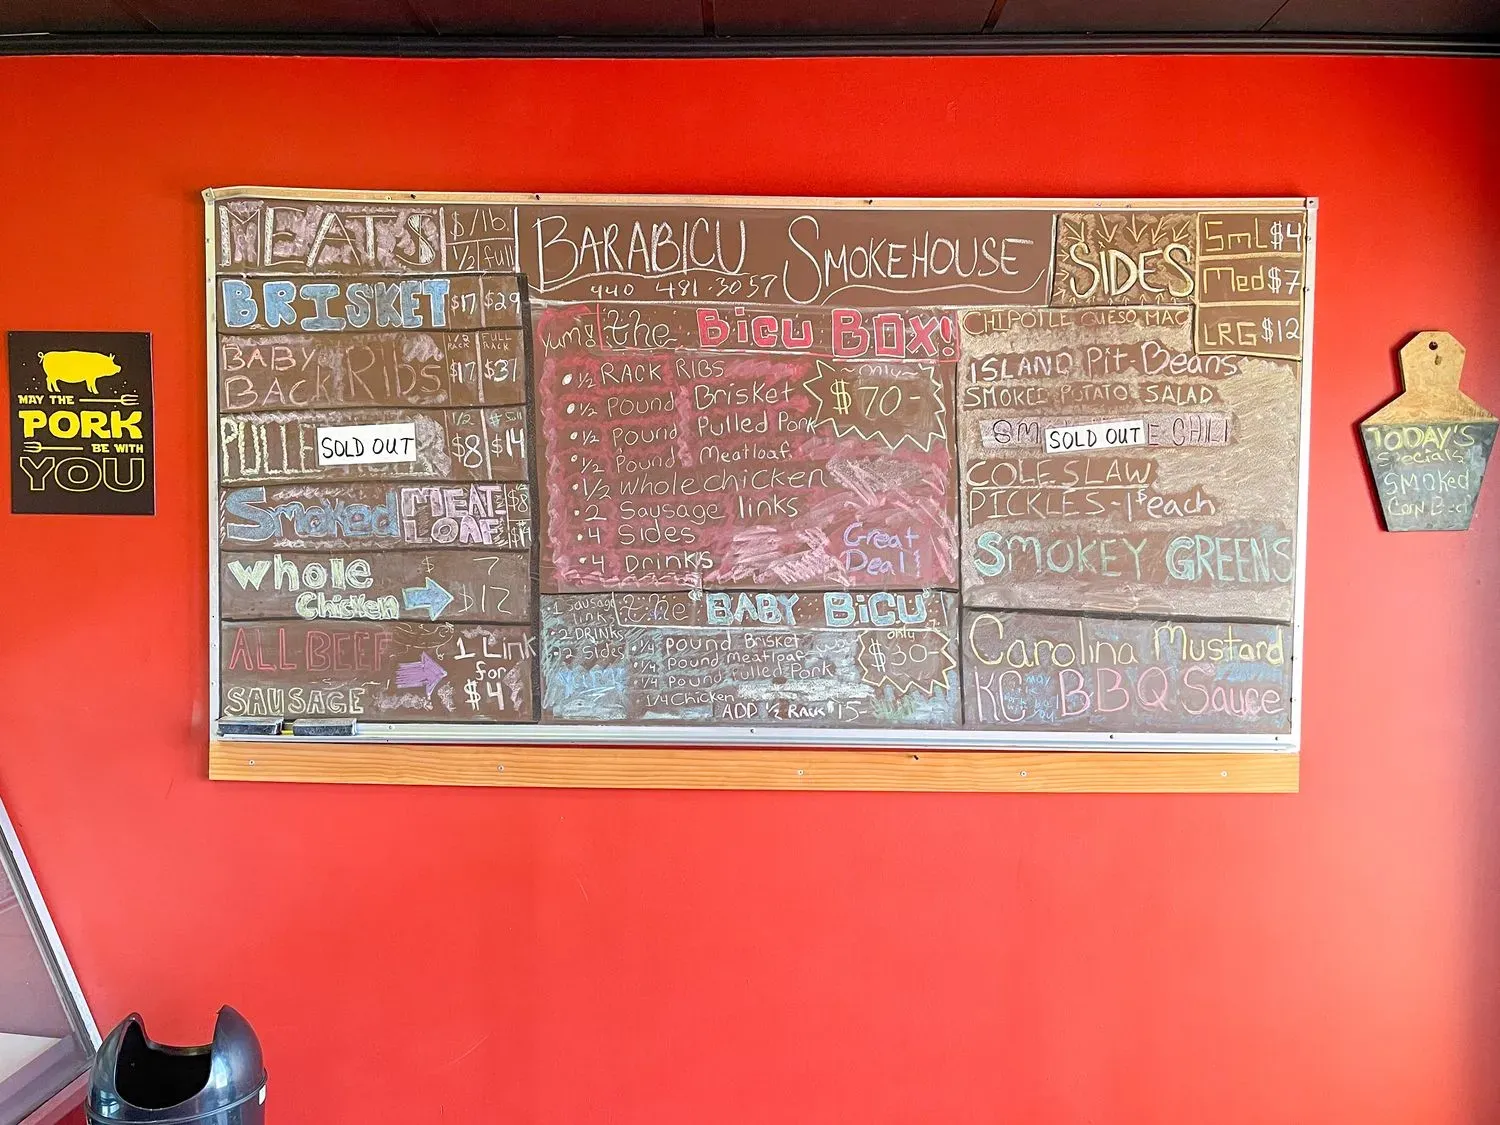 MAY THE
PORK
BE WITH
YOU
MEATS
$/lb
1/2 full
BRISKET $17 $29
BABY
BACK Ribs
1/2 RACK FULL RACK
$17 $31
PULLE
SOLD OUT
1/2
$8 $14
Smoked MEAT
LOAF
$8
$14
whole
Chicken
$ 7
$12
ALL BEEF
SAUSAGE
1 Link
for
$4
BARABICU SMOKEHOUSE
440 481-3057
yum! the BiCU BOX!
only
$70-
1/2 RACK RIBS
1/2 Pound Brisket
1/2 Pound Pulled Pork
1/2 Pound Meatloaf
1/2 whole chicken
2 Sausage links
4 Sides
4 Drinks
Great
Deal!
the "BABY BiCU"
1 Sausage
links
2 DRINKS
2 Sides
1/4 pound Brisket
1/4 pound meatloaf
1/4 pound Pulled Pork
1/4 Chicken
ADD 1/2 RACK $15-
only
$30-
SIDES
Sml $4
Med $7
LRG $12
CHIPOTLE QUESO MAC
ISLAND Pit-Beans
SMOKED POTATO SALAD
SM
SOLD OUT
E CHILI
COLESLAW
PICKLES-1$each
SMOKEY GREENS
Carolina Mustard
KC BBQ Sauce
TODAY'S
Specials
SMOKED
Corn Beef